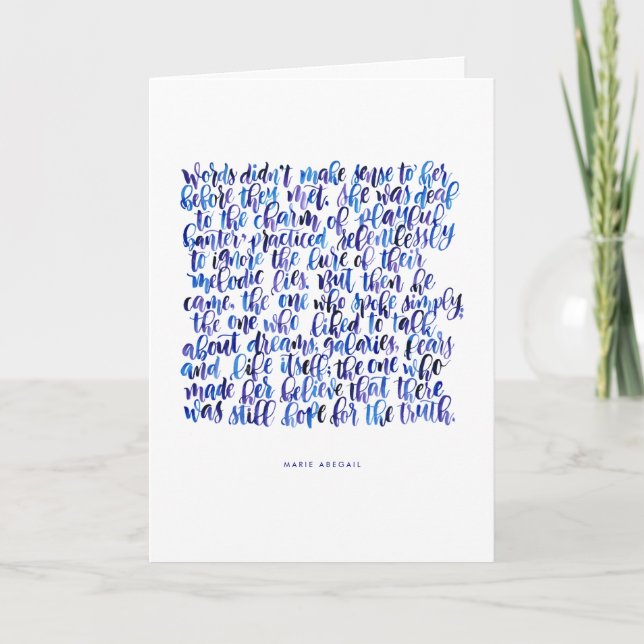 words didn't make sense to her
before they met. she was deaf
to the charm of playful
banter, practiced relentlessly
to ignore the lure of their
melodic lies. But then he
came. the one who spoke simply;
the one who liked to talk
about dreams, galaxies, fears
and life itself; the one who
made her believe that there
was still hope for the truth.
MARIE ABEGAIL